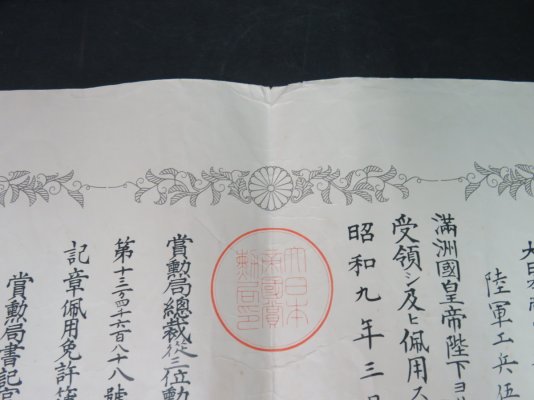 大日本帝
陸軍工兵伍
滿洲國皇帝陛下ヨリ
受領シ及ヒ佩用ス
昭和九年三月
大日本
帝國賞
勲局印
賞勲局總裁從三位勲
第十三万四千六百八十八號
記章佩用免許簿
賞勲局書記官